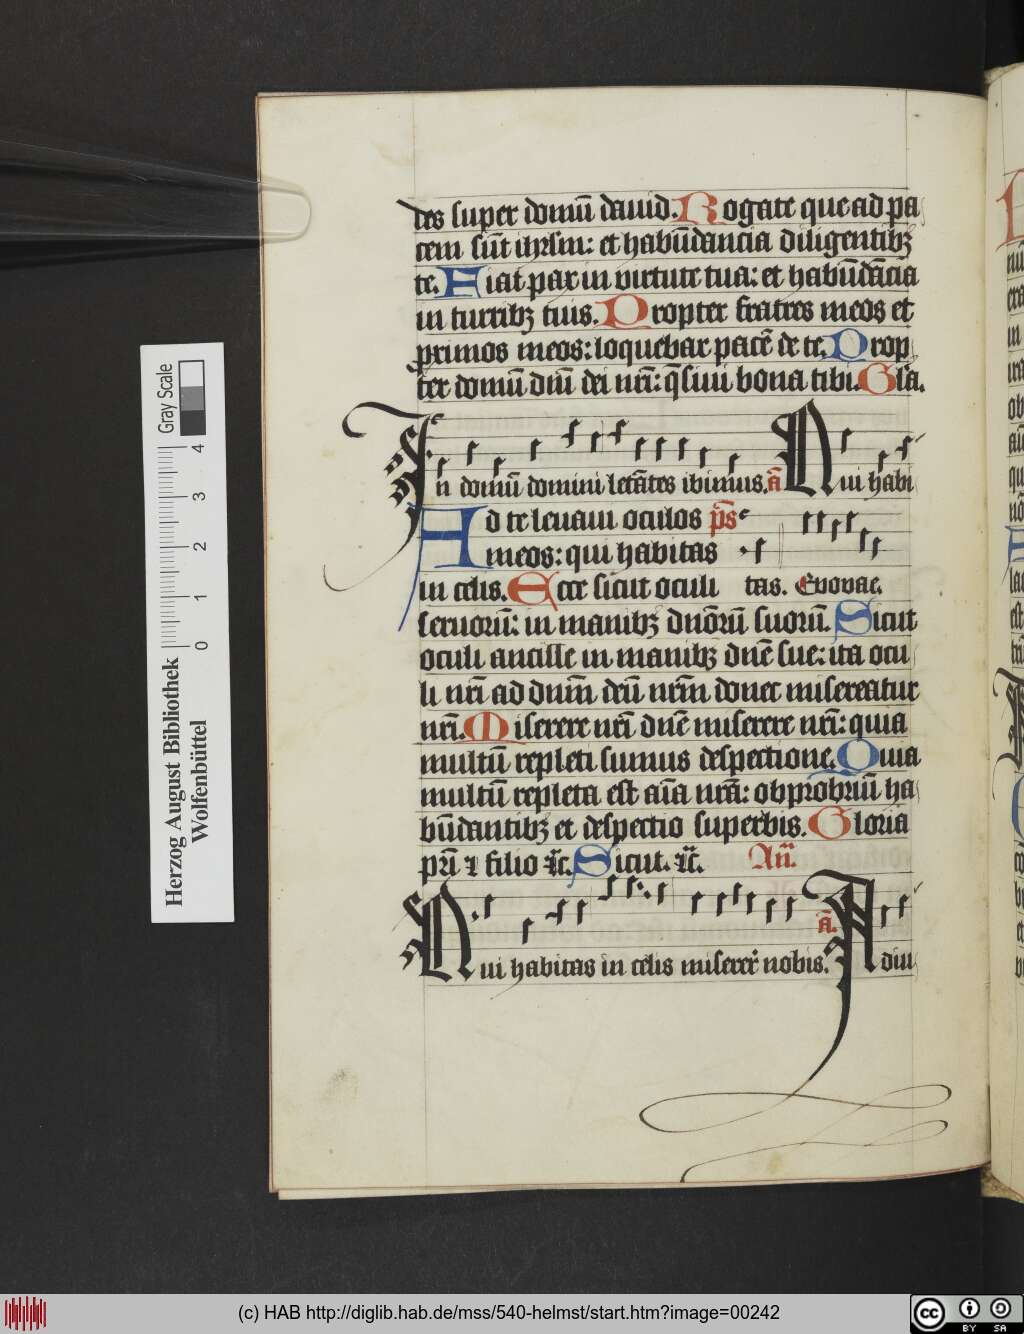 des super domū dauid. Rogate que ad pa
cem sūt ihrlm: et habūdancia diligentibꝫ
te. Fiat pax in virtute tua: et habūdācia
in turribꝫ tuis. Propter fratres meos et
primos meos: loquebar pacē de te. Prop
ter domū dm̄ dei nrī: q̄siui bona tibi. Glā.
In domū domini letātes ibimus. ā Qui habi
Ad te leuaui oculos ps̄
meos: qui habitas
in celis. Ecce sicut oculi tas. Euouae.
seruorū: in manibꝫ dnōrū suorū. Sicut
oculi ancille in manibꝫ dnē sue: ita ocu
li nrī ad dnm̄ deū nrm̄ donec misereatur
nrī. Miserere nrī dnē miserere nrī: quia
multū repleti sumus despectione. Quia
multū repleta est aīa nrā: obprobriū ha
būdantibꝫ et despectio superbis. Gloria
prī ⁊ filio ⁊c̄. Sicut. ⁊c̄. An̄.
Qui habitas in celis miserer̄ nobis. ā. Adiu
Herzog August Bibliothek
Wolfenbüttel
0 1 2 3 4
Gray Scale
(c) HAB http://diglib.hab.de/mss/540-helmst/start.htm?image=00242
cc BY SA